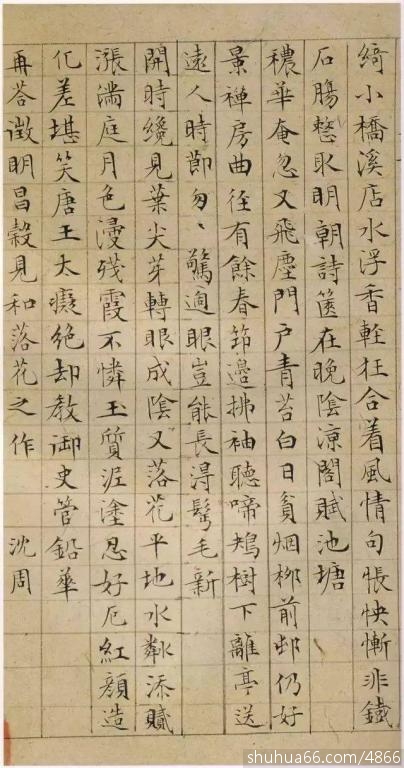 绮小橋溪店水浮香輕狂合着風情句悵怏慚非鐵
石腸整取明朝詩篋在晚陰涼閣賦池塘
穠華奄忽又飛塵門戶青苔白日貧烟柳前邨仍好
景禅房曲徑有餘春筇邉拂袖聽啼鴂樹下離亭送
遠人時節匆〻驚過眼豈能長淂鬓毛新
開時纔見葉尖芽轉眼成陰又落花平地水粼添賦
漲滿庭月色漫殘霞不憐玉質泥塗忍好厄紅顔造
化差堪笑唐王太癡絕却教御史管鉛華
再荅徵明昌穀見和落花之作 沈周
shuhua66.com/4866